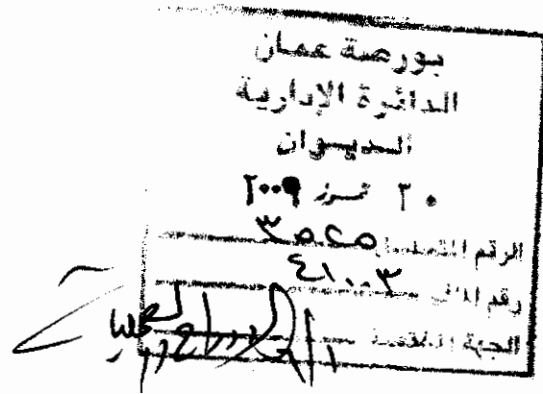 بورصة عمان
الدائرة الإدارية
الديوان
٢٠ تموز ٢٠٠٩
الرقم المتسلسل ٣٥٢٥
رقم الملف ٤١٠٠٣
الجهة المختصة